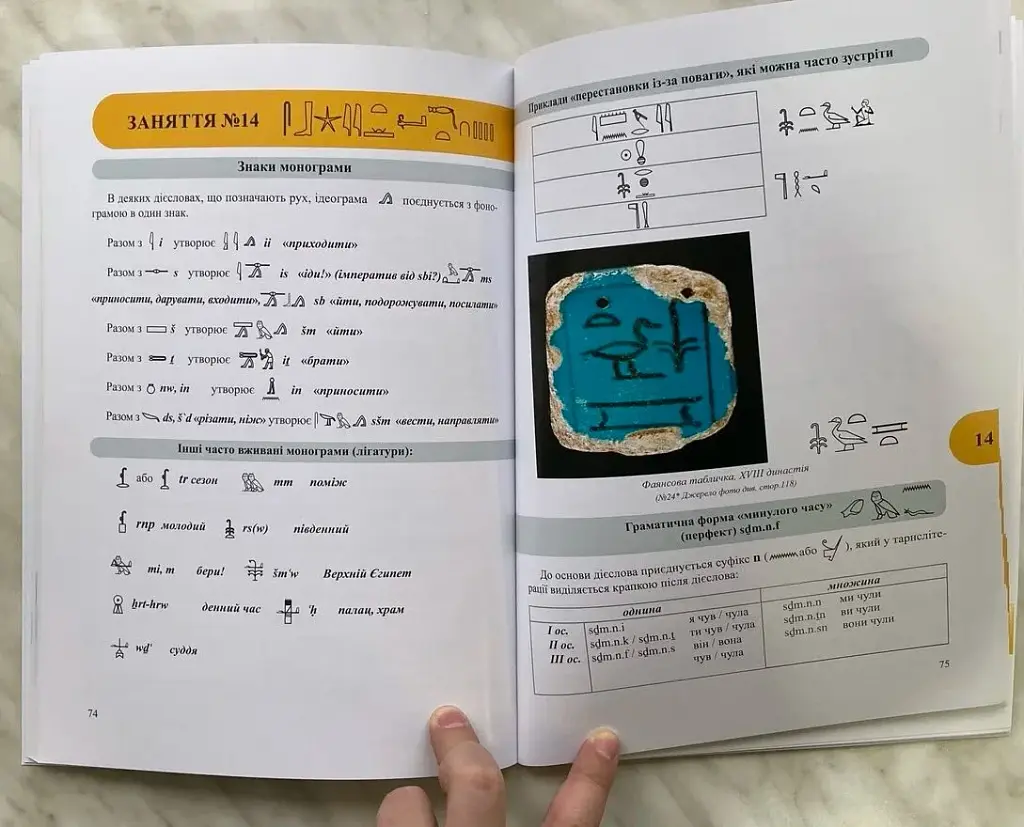 ЗАНЯТТЯ №14
Знаки монограми
В деяких дієсловах, що позначають рух, ідеограма поєднується з фоно-
грамою в один знак.
Разом з i утворює ii «приходити»
Разом з s утворює is «іди!» (імператив від sbi?) ms
«приносити, дарувати, входити», sb «йти, подорожувати, посилати»
Разом з š утворює šm «йти»
Разом з ṯ утворює iṯ «брати»
Разом з nw, in утворює in «приносити»
Разом з ds, š‛d «різати, ніж» утворює sšm «вести, направляти»
Інші часто вживані монограми (лігатури):
або tr сезон mm поміж
rnp молодий rs(w) південний
mi, m бери! šm‛w Верхній Єгипет
hrt-hrw денний час ‛ḥ палац, храм
wḏ‛ суддя
74
Приклади «перестановки із-за поваги», які можна часто зустріти
Фаянсова табличка, XVIII династія
(№24* Джерело фото див. стор.118)
14
Граматична форма «минулого часу»
(перфект) sḏm.n.f
До основи дієслова приєднується суфікс n ( або ), який у транслі
рації виділяється крапкою після дієслова:
однина множина
I ос. sḏm.n.i я чув / чула sḏm.n.n ми чули
II ос. sḏm.n.k / sḏm.n.ṯ ти чув / чула sḏm.n.ṯn ви чули
III ос. sḏm.n.f / sḏm.n.s він / вона sḏm.n.sn вони чули
чув / чула
75